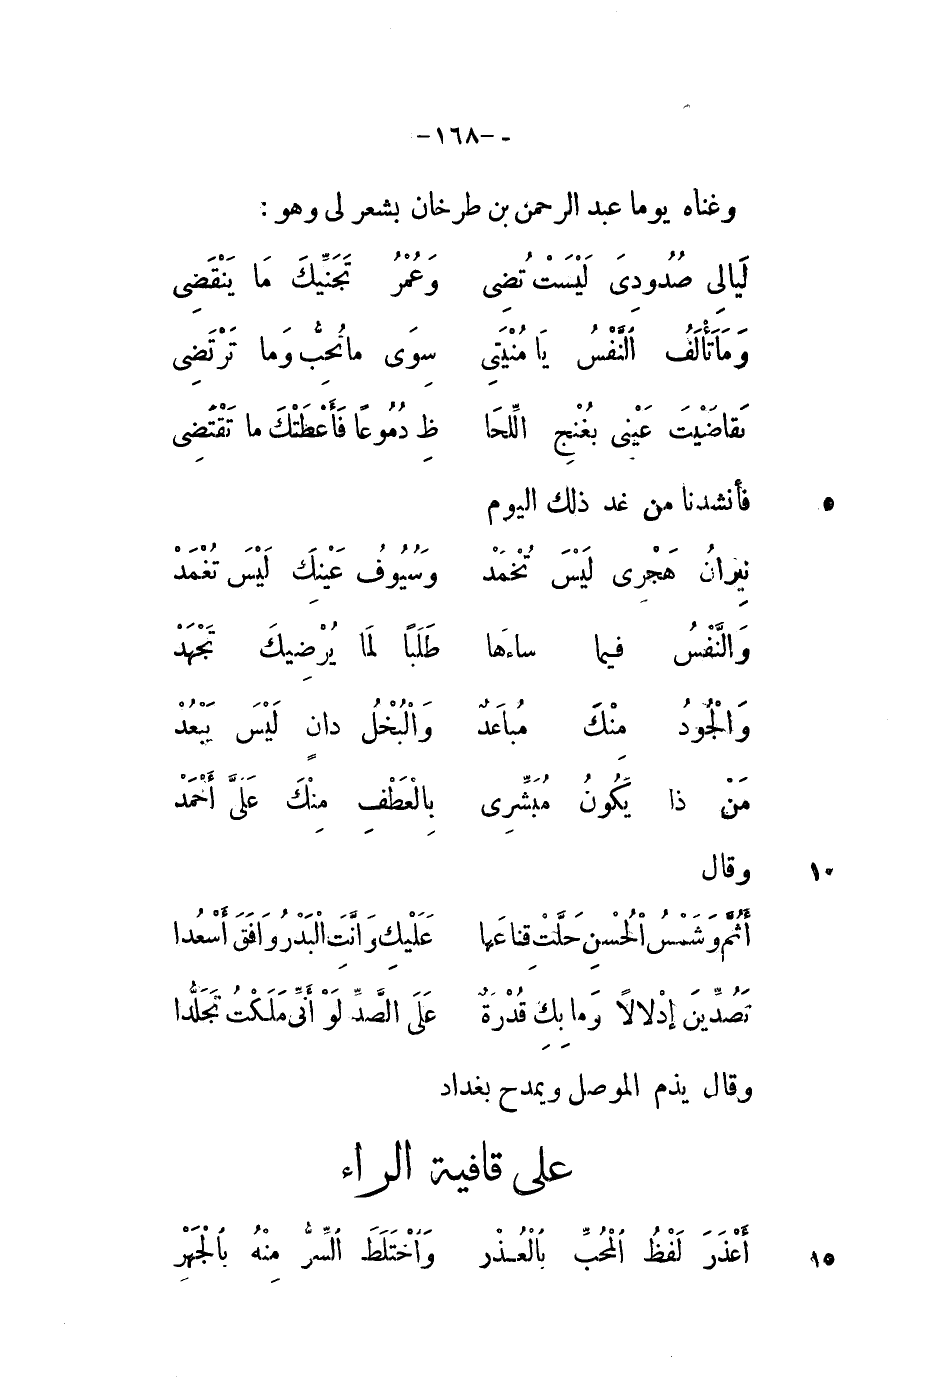 - -١٦٨-
وغناه يوما عبد الرحمن بن طرخان بشعر لى وهو :
لَيَالِي صُدُودِىَ لَيْسَتْ تُضِى وَعُمْرُ تَجَنِّيكَ مَا يَنْقَضِى
وَمَا تَأْلَفُ ٱلنَّفْسُ يَا مُنْيَتِى سِوَى مَا تُحِبُّ وَمَا تَرْتَضِى
تَقاضَيْتَ عَيْنِى بِغُنْجِ اللِّحَا ظِ دُمُوعًا فَأَعْطَتْكَ ما تَقْتَضِى
٥ فأنشدنا من غد ذلك اليوم
نِيرانُ هَجْرِى لَيْسَ تُخْمَدْ وَسُيُوفُ عَيْنِكَ لَيْسَ تُغْمَدْ
وَالنَّفْسُ فيما ساءَها طَلَبًا لِمَا يُرْضِيكَ تَجْهَدْ
وَالْجُودُ مِنْكَ مُباعَدٌ وَالْبُخْلُ دانٍ لَيْسَ يَبْعُدْ
مَنْ ذا يَكُونُ مُبَشِّرِى بِالْعَطْفِ مِنْكَ عَلَىَّ أَحْمَدْ
١٠ وقال
أَثُمَّ وَشَمْسُ الْحُسْنِ حَلَّتْ قِناعَها عَلَيْكِ وَأَنْتِ الْبَدْرُ وَافَقَ أَسْعُدا
تَصُدِّينَ إِدْلالًا وَما بِكِ قُدْرَةٌ عَلَى الصَّدِّ لَوْ أَنِّى مَلَكْتُ تَجَلُّدا
وقال يذم الموصل ويمدح بغداد
على قافية الراء
١٥ أَعْذَرَ لَفْظُ ٱلْمُحِبِّ بِٱلْعُـذْرِ وَٱخْتَلَطَ ٱلسِّرُّ مِنْهُ بِٱلْجَهْرِ